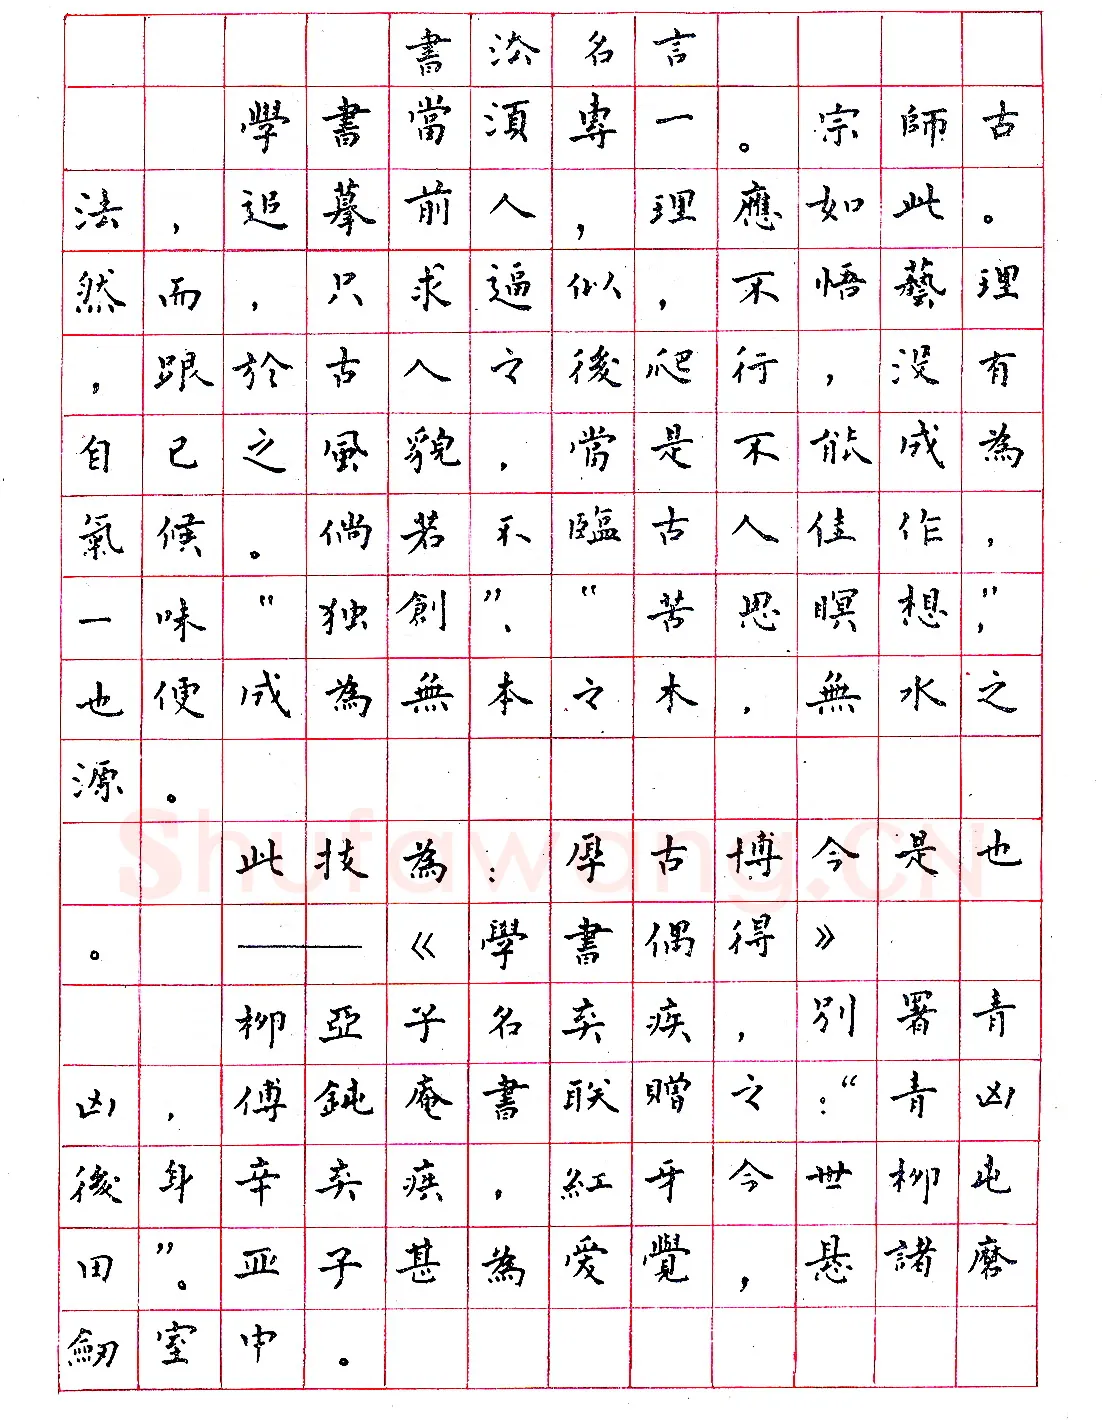 書法名言
學書當須專一。宗師古
法，追摹前人，理應如此。
然而，只求逼似，不悟藝理
，跟於古人之後爬行，没有
自己之風貌，當是不能成為
氣候。倘若不臨古人佳作，
一味“独創”、“苦思瞑想”，
也便成為無本之木，無水之
源。
此技為：厚古博今是也
。——《學書偶得》
柳亞子名弃疾，別署青
凶，傅鈍庵書联贈之：“青凶
後身辛弃疾，紅牙今世柳屯
田”。亚子甚為愛覺，悬諸磨
劒室中。
Shufawang.CN